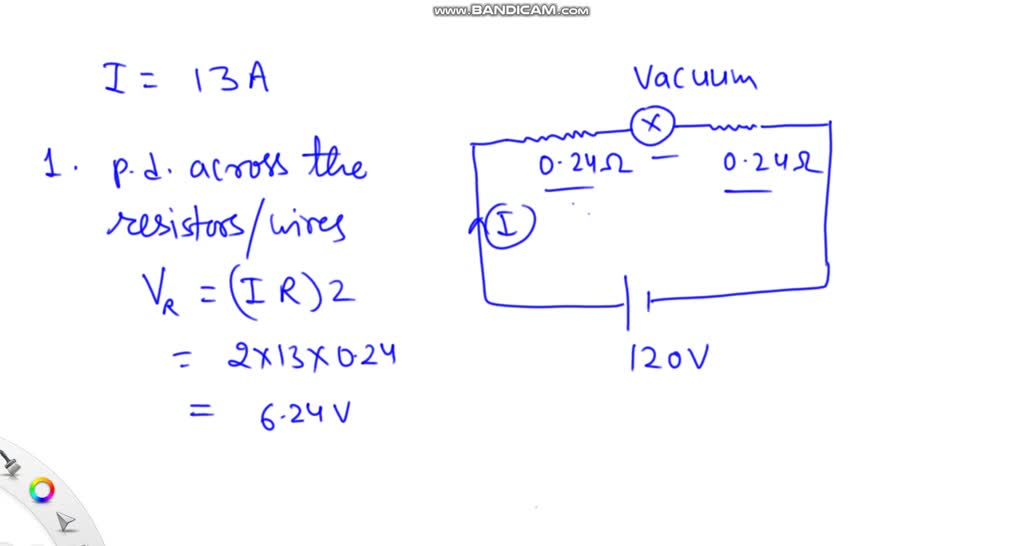 www.BANDICAM.com
I = 13A
1. p.d. across the
resistors/wires
V_R = (I R) 2
= 2×13×0.24
= 6.24 V
Vacuum
X
0.24Ω — 0.24Ω
I
120V